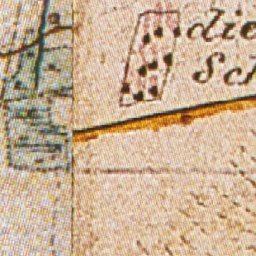 die
Sch